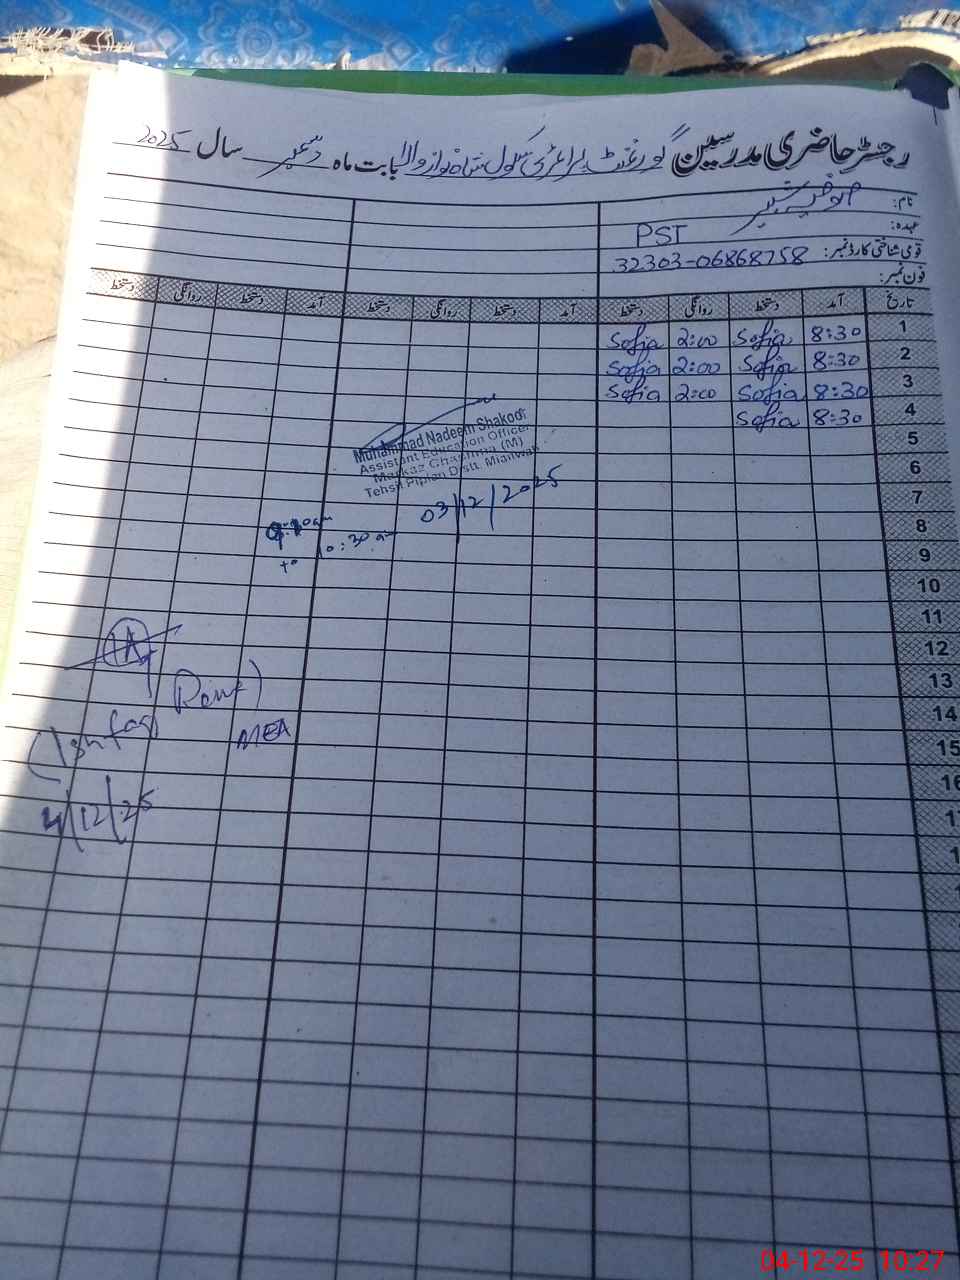 رجسٹر حاضری مدرسین گورنمنٹ پرائمری سکول شاہنواز والا بابت ماہ دسمبر سال 2025
نام: صوفیہ شبیر
عہدہ: PST
قومی شناختی کارڈ نمبر: 32303-06868758
فون نمبر:
تاریخ آمد دستخط روانگی دستخط آمد دستخط روانگی دستخط آمد دستخط روانگی دستخط
1 8:30 Sofia 2:00 Sofia
2 8:30 Sofia 2:00 Sofia
3 8:30 Sofia 2:00 Sofia
4 8:30 Sofia
5
6
7
8
9
10
11
12
13
14
15
16
Muhammad Nadeem Shakoor
Assistant Education Officer
Markaz Chashma (M)
Tehsil Piplan Distt. Mianwali
03/12/2025
to 10:30 am
MEA
4/12/25
04-12-25 10:27